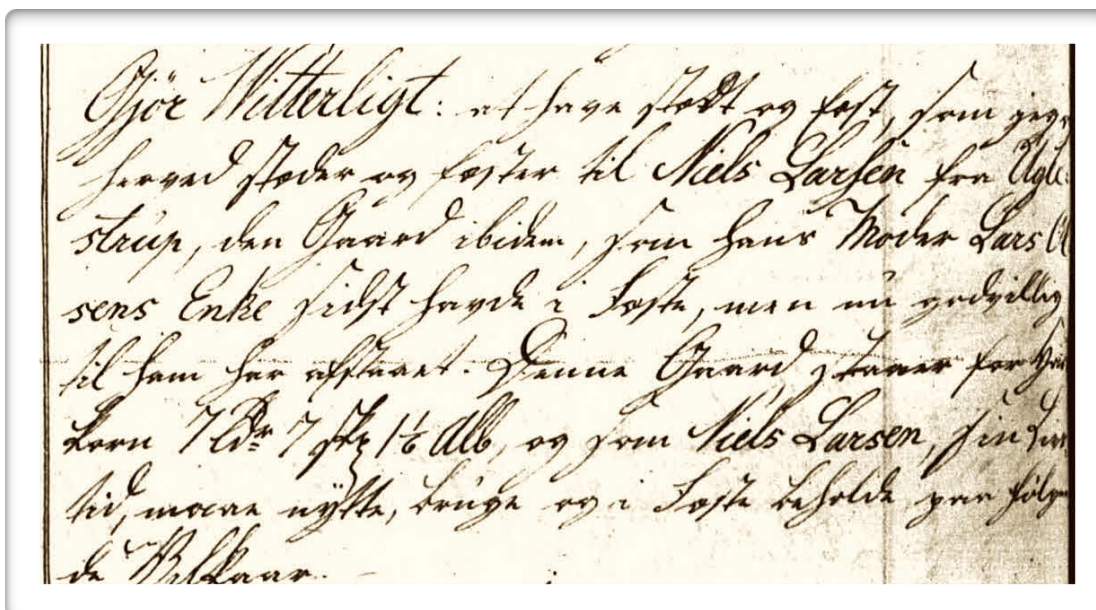 Gjör Witterligt: at have stædt og fæst, som jeg
herved stæder og fæster til Niels Larsen fra Ugle-
strup, den Gaard ibidem, som hans Moder Lars Ol
sens Enke sidst havde i Fæste, men nu godvillig
til ham har afstaaet. Denne Gaard staaer for Har
korn 7 Tdr 7 Skp 1½ Alb, og som Niels Larsen, sin Livs
tid, maae nytte, bruge og i Fæste beholde paa følgen
de Vilkaar.